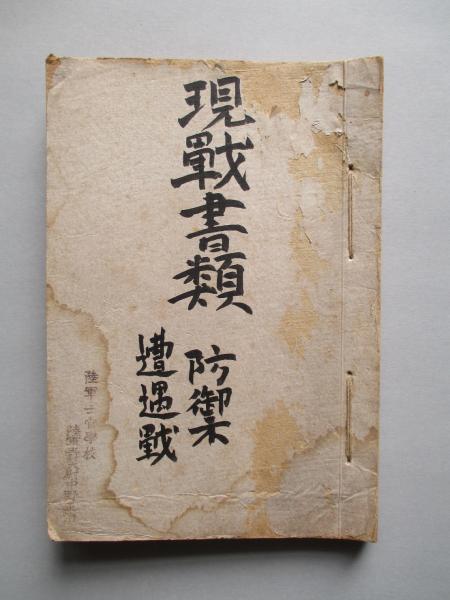 現戰書類
防禦
遭遇戰
陸軍士官學校